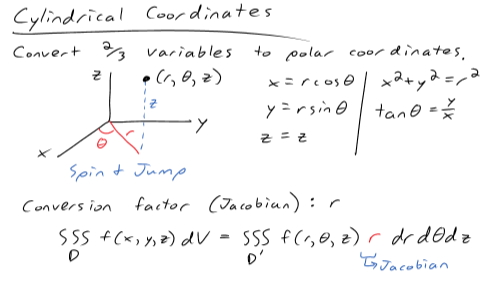 Cylindrical Coordinates
Convert 2/3 variables to polar coordinates.
z
(r, θ, z)
z
y
x
θ
r
Spin & Jump
x = r cos θ
y = r sin θ
z = z
x² + y² = r²
tan θ = y/x
Conversion factor (Jacobian) : r
SSS f(x, y, z) dV = SSS f(r, θ, z) r dr dθ dz
D D'
↳ Jacobian